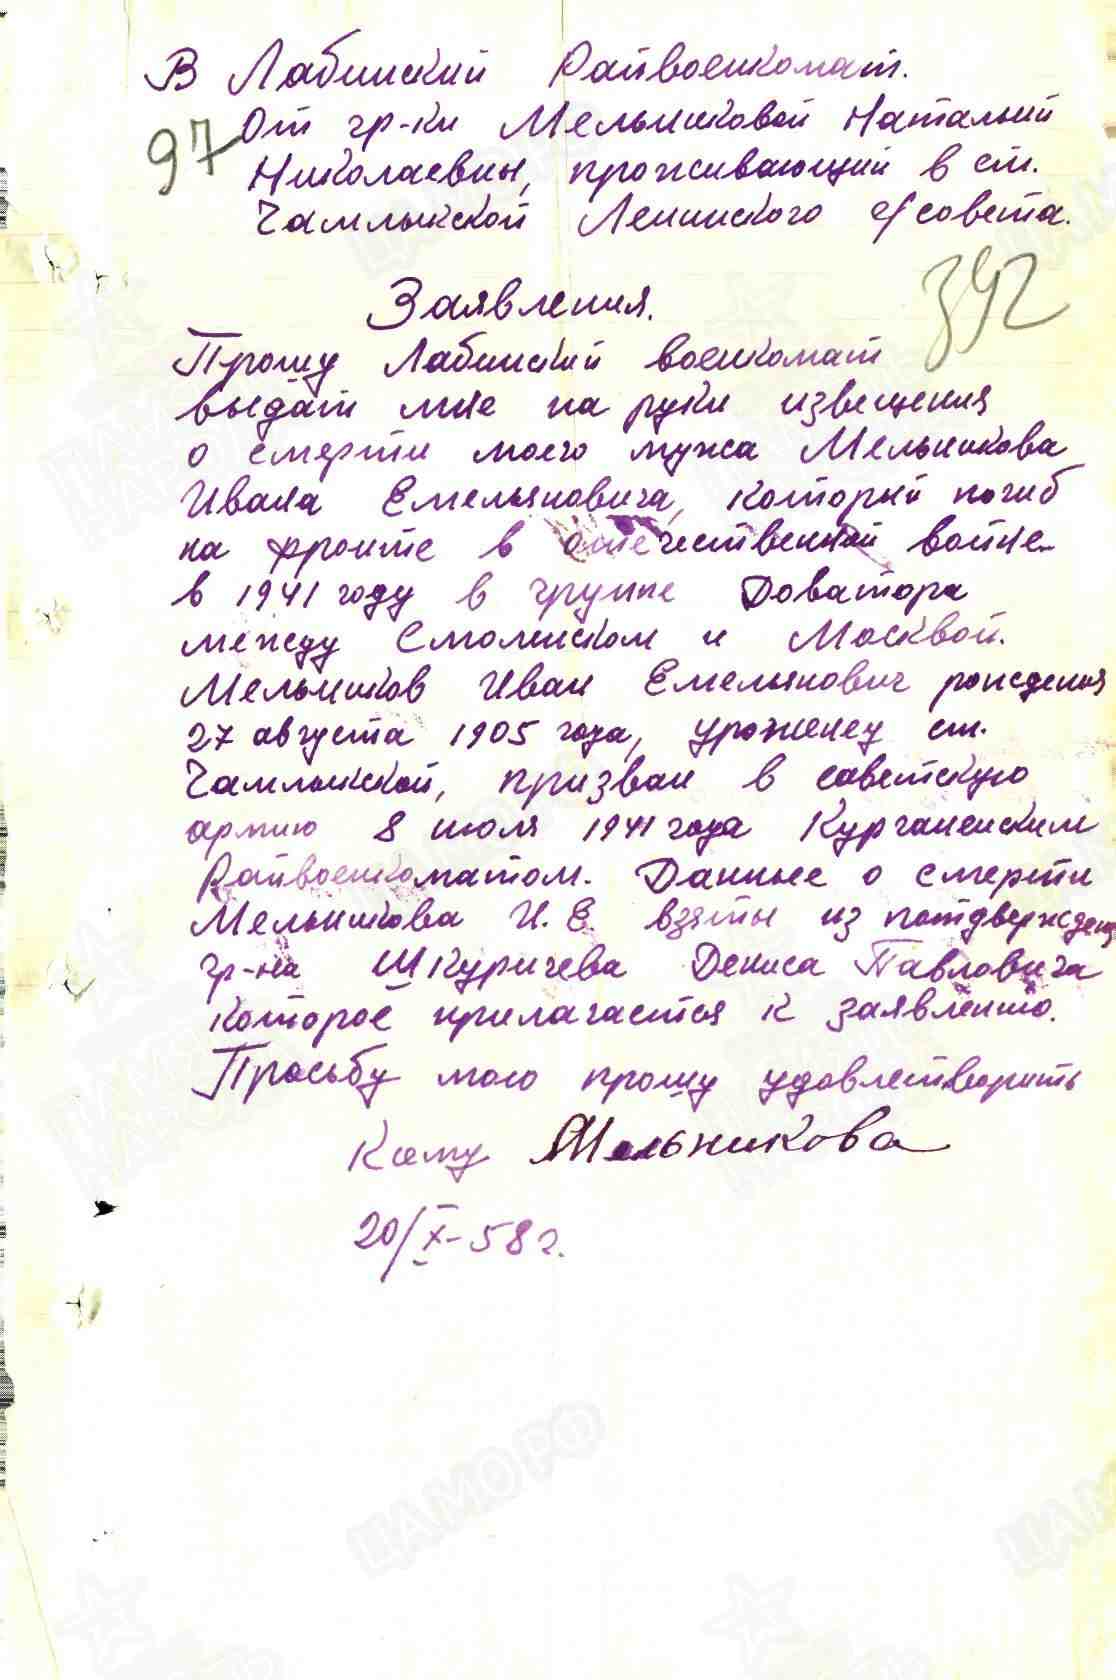 В Лабинский Райвоенкомат.
97 От гр-ки Мельниковой Наталий
Николаевны, проживающий в ст.
Чамлыкской Ленинского с/совета.
392
Заявления.
Прошу Лабинский военкомат
выдат мне на руки извещения
о смерти моего мужа Мельникова
Ивана Емельяновича, который погиб
на фронте в отечественной войне
в 1941 году в группе Доватора
между Смоленском и Москвой.
Мельников Иван Емельянович рождения
27 августа 1905 года, уроженец ст.
Чамлыкской, призван в советскую
армию 8 июля 1941 года Курганенским
Райвоенкоматом. Данные о смерти
Мельникова И. Е взяты из потдвержден
гр-на Шкуричева Дениса Павловича
которое прилагается к заявлению.
Просьбу мою прошу удовлетворить
К сему Мельникова
20/X-58 г.
ЦАМО РФ